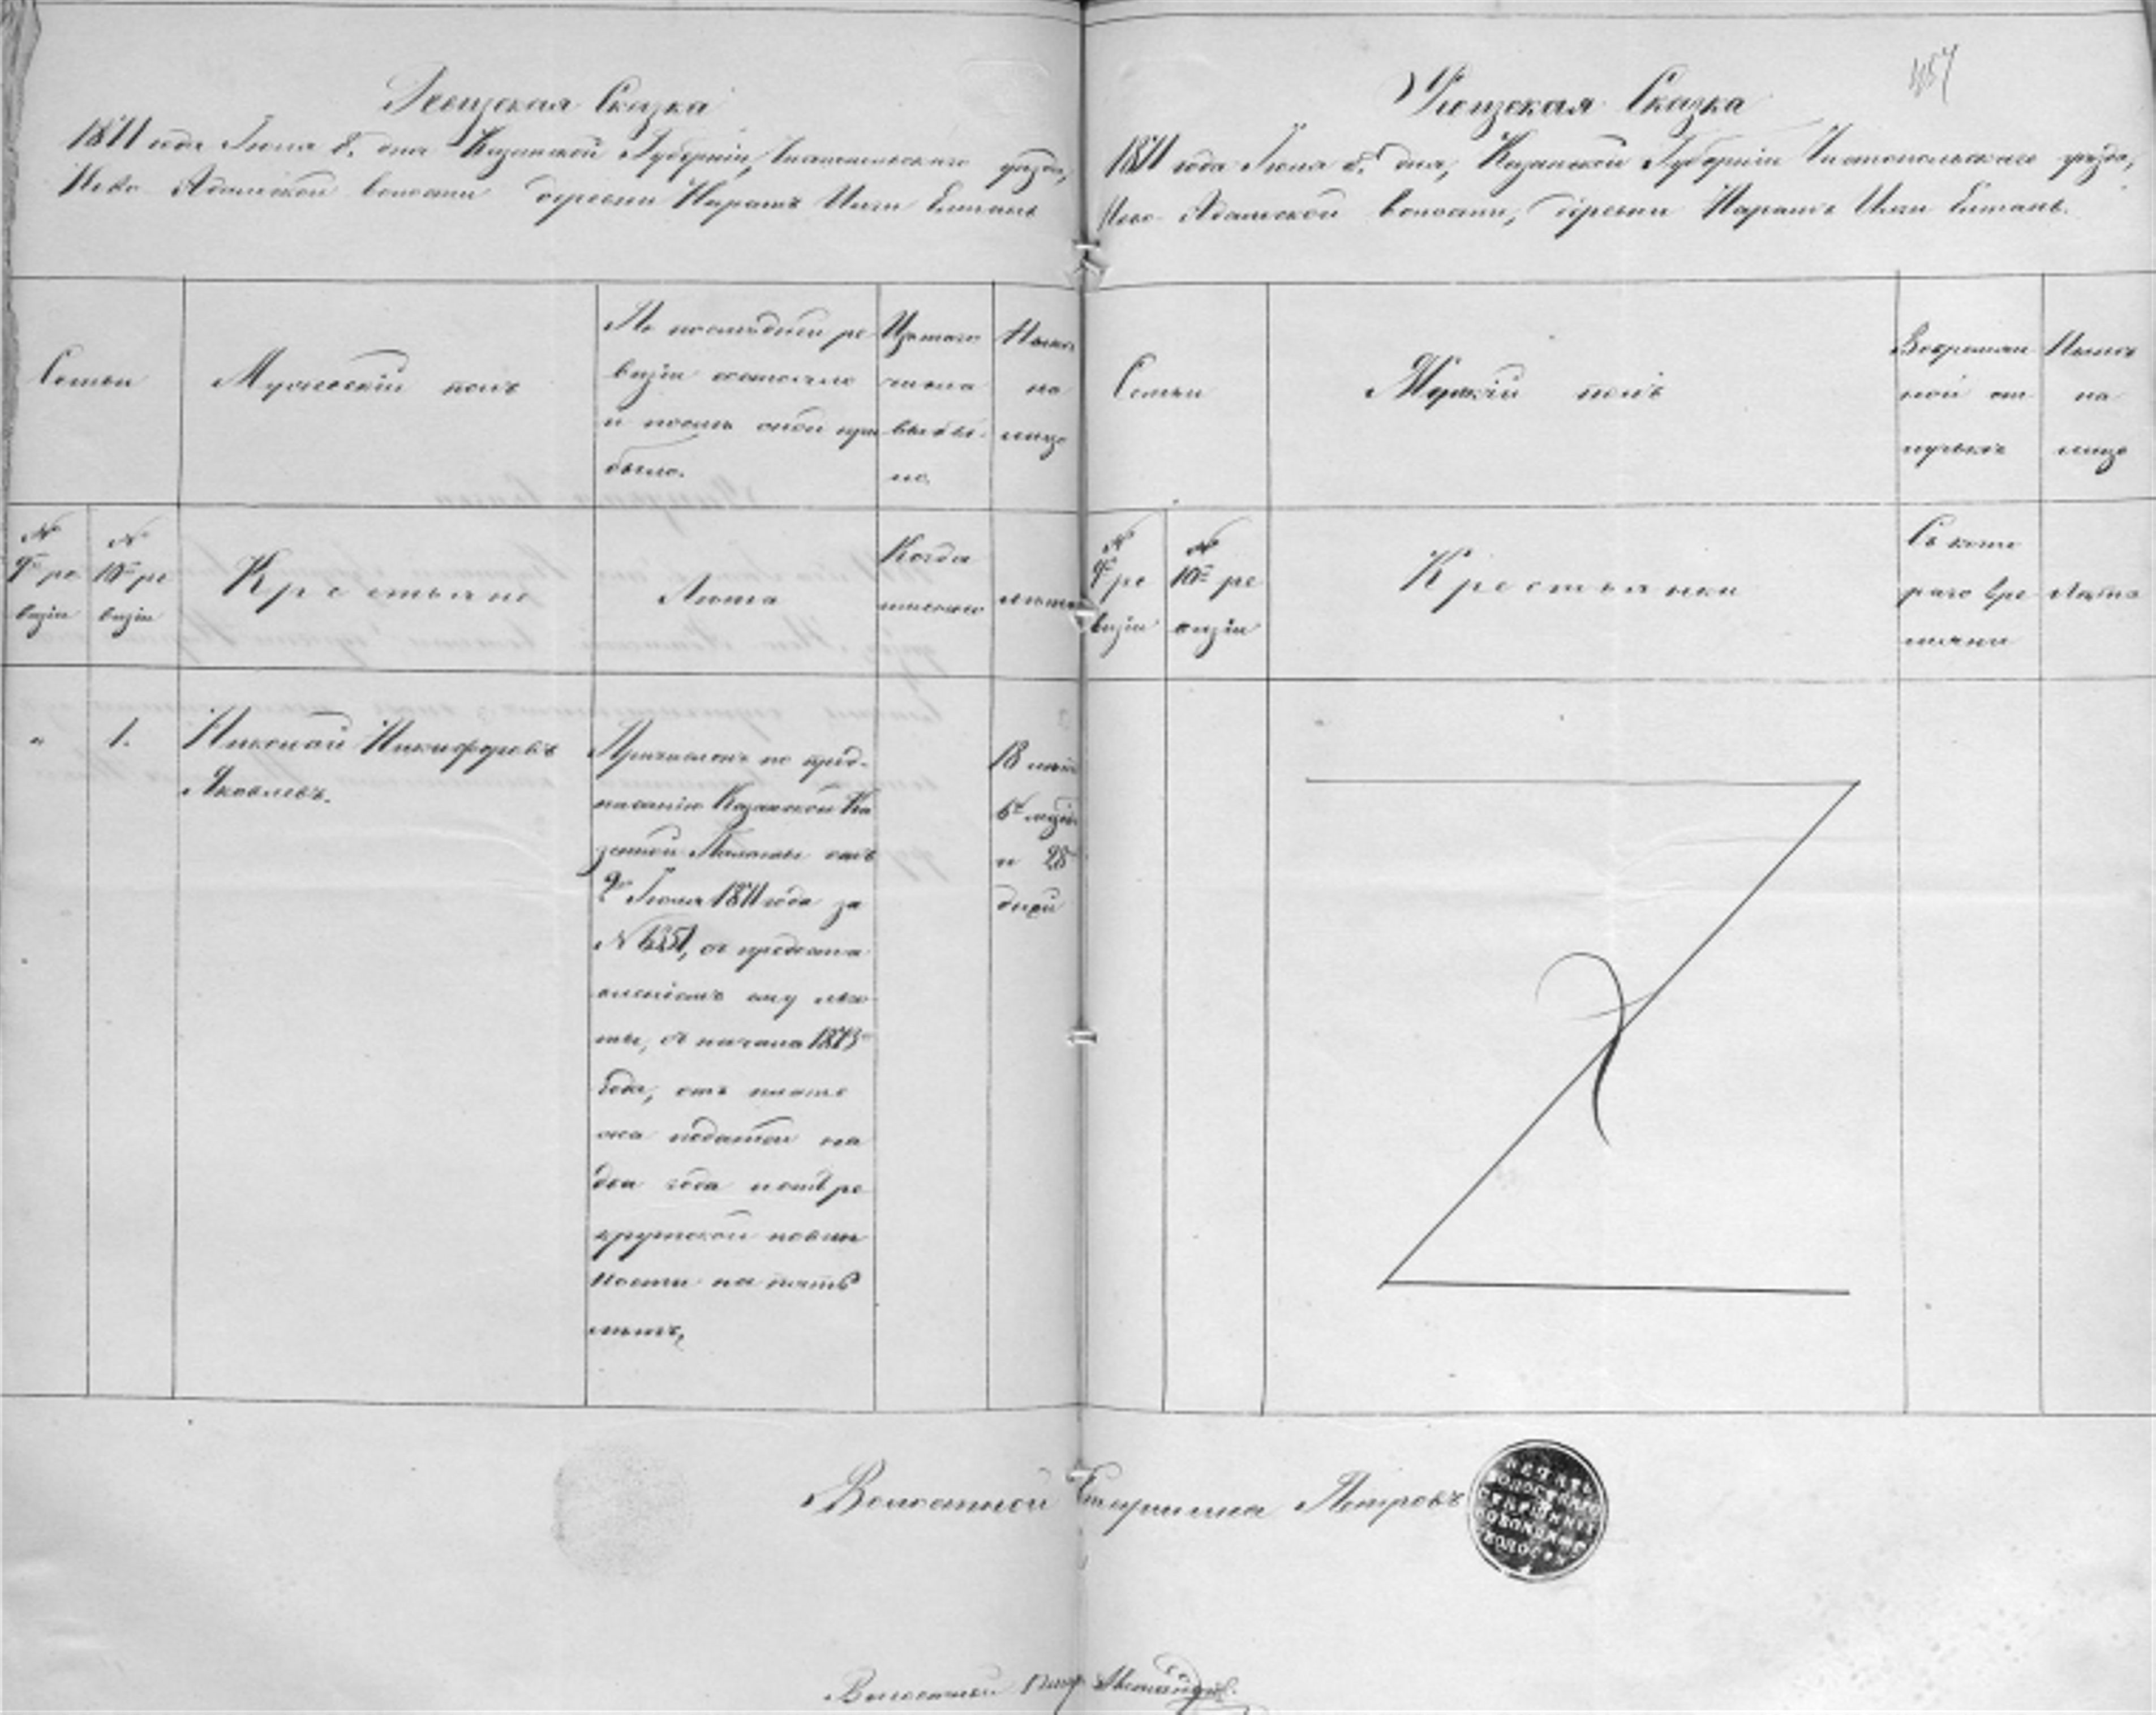 Ревизская Сказка
1871 года Июля 8. дня Казанской Губернии, Чистопольского уезда,
Ново Адамской волости деревни Нарат Илги Елтань
Семьи
Мужеский полъ
По последней ре
визіи состояло
и после оной при
было.
Изъ того
числа
выбы-
ло.
Ныне
на
лицо
№
9й ре
визіи
№
10й ре
визіи
Крестьяне
Лета
Когда
именно
лета
"
1.
Николай Никифоровъ
Яковлевъ.
Причисленъ по пред-
писанію Казанской Ка
зенной Палаты отъ
2го Июля 1871 года за
№ 6351, съ предоста
вленіемъ ему льго
ты, съ начала 1873го
года, отъ плате
жа податей на
два года и отъ ре
крутской повин
ности на шесть
летъ,
18 летъ
6ть мъся
и 28
дней
457
Ревизская Сказка
1871 года Июля 8го дня, Казанской Губернии Чистопольского уезда,
Ново-Адамской волости, деревни Наратъ Илги Елтань.
Семьи
Мужскій полъ
Во времен
ной от
лучке
Ныне
на
лицо
№
9й ре
визіи
№
10й ре
визіи
Крестьянки
Съ кото
раго вре
мени
Лета
Волостной Старшина Петровъ
ПЕЧАТЬ
ВОЛОСТНАГО
СТАРШИНЫ
Волостной Писарь